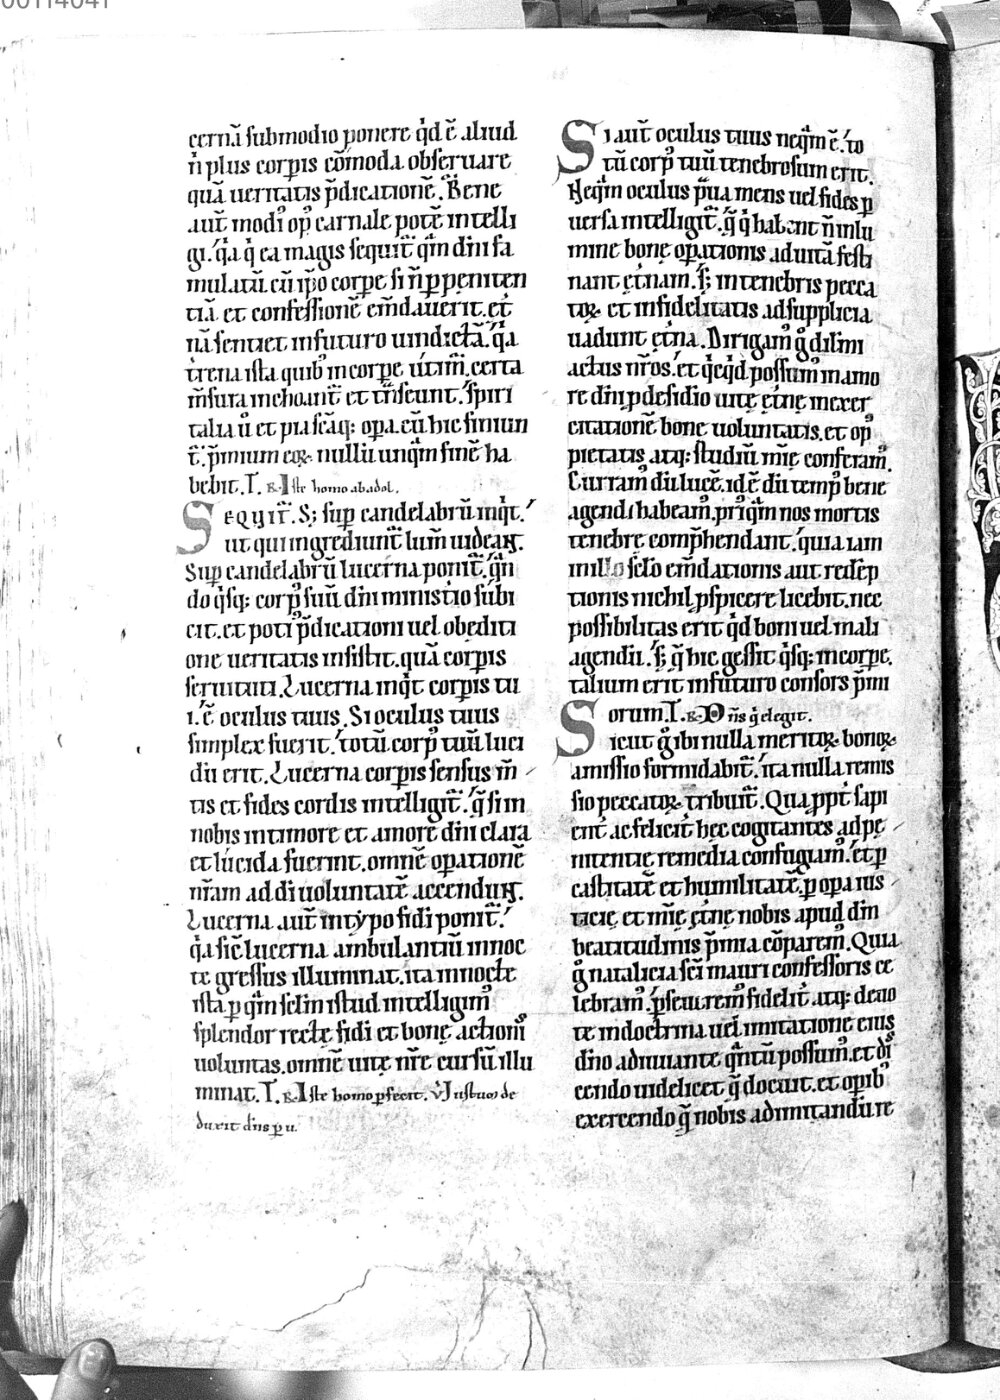 00114041
cernā submodio ponere qd̄ ē aliud
n̄ plus corpis cōmoda obseruare
quā ueritatis p̄dicationē. Bene
aut̄ modi᷒ op᷒ carnale potē intelli
gi. qͥa qͥ ea magis sequit̄ qͣm dn̄i fa
mulatū cū ip̄o corpe si n̄ p peniten
tiā et confessionē em̄dauerit. et̨
nā sentiet infuturo uindictā. qͥa
t̄rena ista quib᷒ incorpe utim̄. certa
m̄sura inchoant̄ et t̄nseunt. Spiri
talia ū et pia sc̄aq; opa. cū hic finiun
t̄. p̄mium eoꝝ nullū unqͣm finē ha
bebit. T. R. Iste homo ab adol.
Sequit̄. S; sup candelabrū inqͥt.
ut qui ingrediunt̄ lum̄ uideaɴt̄.
Sup candelabrū lucerna ponit̄. qͣn
do qͥsq; corp᷒ suū dn̄i ministio subi
cit. et poti᷒ p̄dicationi uel obediti
one ueritatis insistit. quā corpis
seruituti. Lucerna inqͥt corpis tu
i. ē oculus tuus. Si oculus tuus
simplex fuerit. totū corp᷒ tuū luci
dū erit. Lucerna corpis sensus m̄
tis et fides cordis intelligit̄. q̄ si in
nobis in timore et amore dn̄i clara
et lucida fuerint. omnē opationē
nr̄am ad di uoluntatē accenduɴt.
Lucerna aut̄ in typo fidi ponit̄.
qͥa sic̄ lucerna ambulantiū innoc
te gressus illuminat. ita innocte
ista p qͣm sclm̄ istud intelligim᷒
splendor recte̜ fidi et bone̜ actioni᷒
uoluntas. omnē uite̜ nr̄e cursū illu
minat. T. R. Iste homo pfecit. V̄ Iustum de
duxit dn̄s p u.
Si aut̄ oculus tuus neqͣm ē. to
tū corp᷒ tuū tenebrosum erit.
Neqͣm oculus p̄ua mens uel fides p
uersa intelligit̄. q̄ qͥ habent n̄ in lu
mine bone̜ opationis ad uitā festi
nant et̨nam. S; in tenebris pecca
toꝝ et infidelitatis ad supplicia
uadunt et̨na. Dirigam᷒ g̊ dil̄mi
actus nr̄os. et qͥcqͥd possum᷒ in amo
re dn̄i p desidio uite̜ et̨ne̜ in exer
citatione bone̜ uoluntatis. et op᷒
pietatis atq; studiū mīe conferam᷒.
Curram᷒ dū lucē. id ē dū temp᷒ bene
agendi habeam᷒. pri᷒qͣm nos mortis
tenebre̜ comp̄hendant. quia iam
in illo sclo em̄dationis aut redēp
tionis nichil pspicere licebit. nec
possibilitas erit qd̄ boni uel mali
agendū. S; q̄ hic gessit qͥsq; in corpe.
talium erit in futuro consors p̄mi
orum. T. R. Dn̄s q̄ elegit.
Sicut g̊ ibi nulla meritoꝝ bonoꝝ
amissio formidabit̄. ita nulla remis
sio peccatoꝝ tribuit̄. Qua ppt̄ sapi
ent̄ ac felicit̄ hec cogitantes ad pe̜
nitentie̜ remedia confugiam᷒. et p
castitatē et humilitatē. p opa ius
ticie̜ et mīe̜ et̨ne̜ nobis apud dm̄
beatitudinis p̄mia cōparem᷒. Quia
g̊ natalicia sc̄i mauri confessoris ce
lebram᷒. p̄seuerem᷒ fidelit̄ atq; deuo
te in doctrina uel imitatione eius
dn̄o adiuuante qͣntū possum᷒. et di
cendo uidelicet q̄ docuit. et opib᷒
exercendo q̄ nobis ad imitandū re